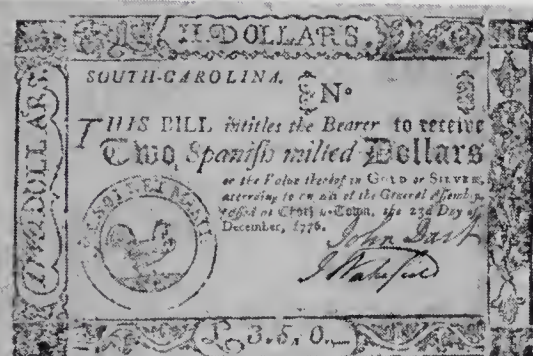 II. DOLLARS.
SOUTH-CAROLINA.
No
THIS BILL intitles the Bearer to receive
Two Spanish milled Dollars
or the Value thereof in GOLD or SILVER,
according to an Act of the General Assembly,
passed at Charles-Town, the 23d Day of
December, 1776.
John Dart
J Wakefield
TWO DOLLARS
£.3.5.0.